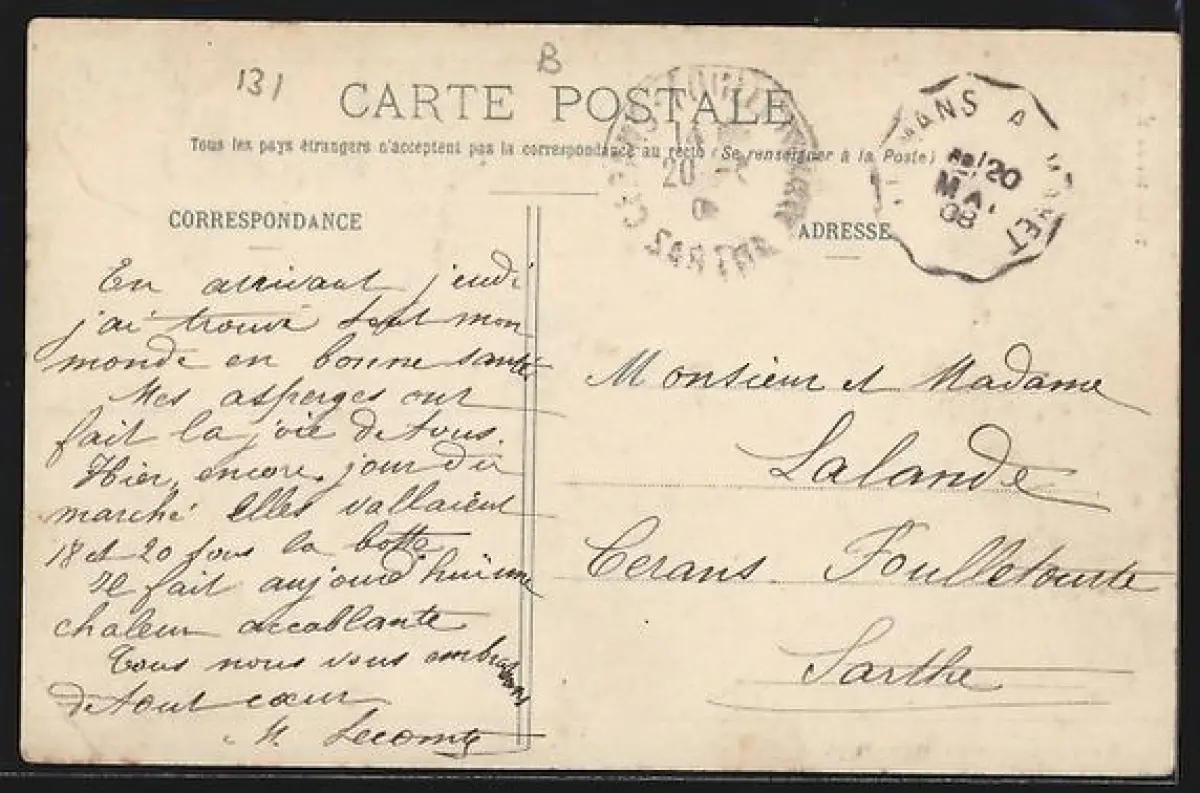 131
B
CARTE POSTALE
Tous les pays étrangers n'acceptent pas la correspondance au recto (Se renseigner à la Poste)
MANS A
20
MAI
08
20
CORRESPONDANCE
ADRESSE
En arrivant jeudi
j'ai trouvé tout mon
monde en bonne santé
Mes asperges ont
fait la joie de tous.
Hier, encore, jour du
marché elles vallaient
18 et 20 sous la botte
Il fait aujourd'hui une
chaleur accablante
Tous nous vous embrassons
de tout cœur
M. Lecomte
Monsieur et Madame
Lalande
Cerans Foulletourte
Sarthe